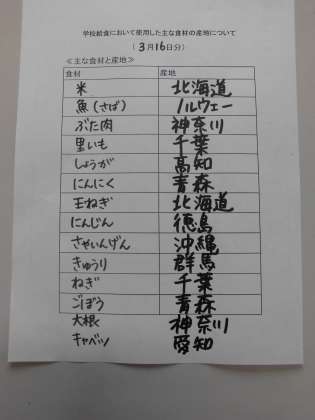 学校給食において使用した主な食材の産地について
(3月16日分)
≪主な食材と産地≫
食材 産地
米 北海道
魚(さば) ノルウェー
ぶた肉 神奈川
里いも 千葉
しょうが 高知
にんにく 青森
玉ねぎ 北海道
にんじん 徳島
さやいんげん 沖縄
きゅうり 群馬
ねぎ 千葉
ごぼう 青森
大根 神奈川
キャベツ 愛知